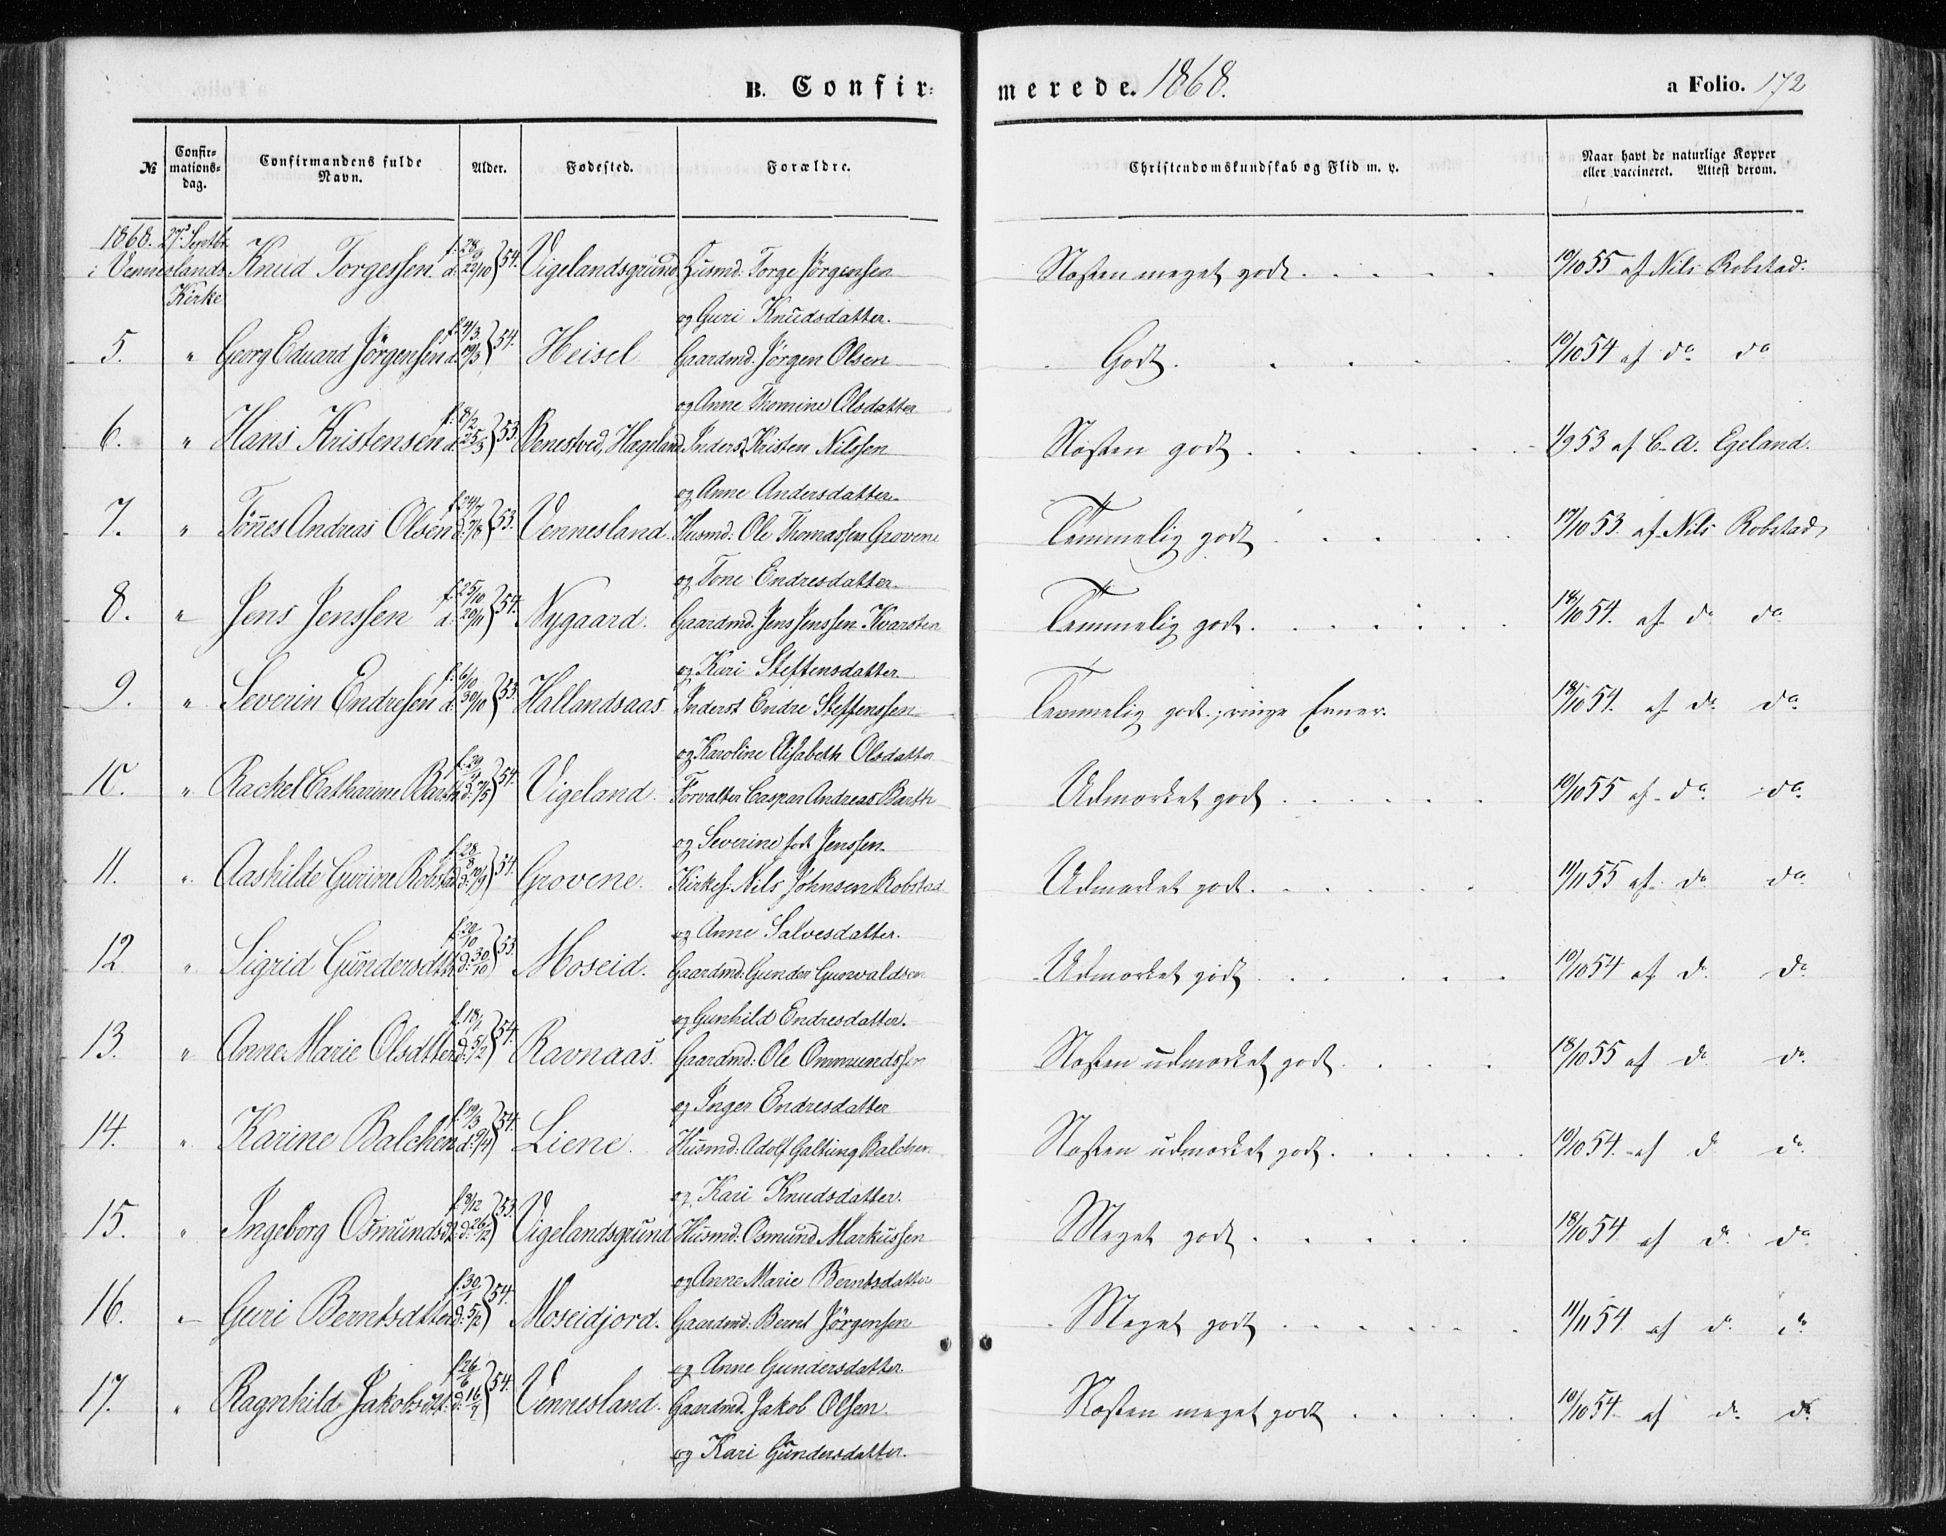 B. Confir= merede. 1868. a Folio. 172
№ Confir=mations=dag. Confirmandens fulde Navn. Alder. Fødested. Forældre. Christendomskundskab og Flid m. v. Naar havt de naturlige Kopper eller vaccineret. Attest derom.
1868. 27de Septbr. i Venneslands Kirke Knud Torgessen. 54. Vigelandsgrund Husmd: Torge Jørgensen Næsten meget godt. 10/10 55 af Nils Robstad.
og Guri Knudsdatter.
5. " Georg Eduard Jørgensen 54. Heisel Gaardmd. Jörgen Olsen Godt. 10/10 54 af do do
og Anne Thomine Olsdatter
6. " Hans Kristensen 53. Benestved, Hægeland Inderst Kristen Nilssen Næsten godt. 1/9 53 af C. A. Egeland.
og Anne Andersdatter.
7. " Tönnes Andreas Olsen 53. Vennesland. Husmd: Ole Thomassen Grovene Temmelig godt 17/10 53. af Nils Robstad
og Tone Endresdatter.
8. " Jens Jenssen f. 25/10 d. 20/11 54. Nygaard. Gaardmd. Jens Jenssen Kvarsten Temmelig godt. 18/10 54. af do do
og Kari Steffensdatter.
9. " Severin Endresen d. 30/10 53. Hallandsaas Inderst Endre Steffenssen Temmelig godt; ringe Evner. 18/10 54. af do do
og Karoline Elisabeth Olsdatter
10. " Rachel Catharine Barth 54. Vigeland. Forvalter Caspar Andreas Barth Udmærket godt 10/10 55 af do do
og Severine født Jenssen.
11. " Aashilde Gurine Robstad 54. Grovene. Kirkes: Nils Johnsen Robstad Udmærket godt. 11/11 55 af do do
og Anne Salvesdatter.
12 " Sigrid Gundersdtr f. 20/10 d. 30/10 53. Moseid. Gaardmd: Gunder Gunvaldsen Udmærket godt 10/10 54 af do do
og Gunhild Endresdatter.
13. " Anne Marie Olsdtter f. 18/1 d. 5/2 54. Ravnaas. Gaardmd: Ole Ommundssen Næsten udmærket godt. 18/10 55 af do do
og Inger Endresdatter
14. " Karine Balchen f. 19/3 54. Liene. Husmd: Adolf Galtung Balchen Næsten udmærket godt. 10/10 54. af do do
og Kari Knudsdatter.
15. " Ingeborg Osmundsdt. f. 3/12 d. 26/12 53. Vigelandsgrund Husmd: Osmund Markussen Meget godt. 18/10 54 af do do
og Anne Marie Berntsdatter
16. " Guri Berntsdatter 54. Moseidjord. Gaardmd: Bernt Jörgensen Meget godt 11/11 54. af do do
og Anne Gundersdatter.
17. " Ragnhild Jakobsdt. f. 26/6 d. 16/7 54. Vennesland. Gaardmd. Jakob Olsen Næsten meget godt 10/10 54. af do do
og Kari Gundersdatter.